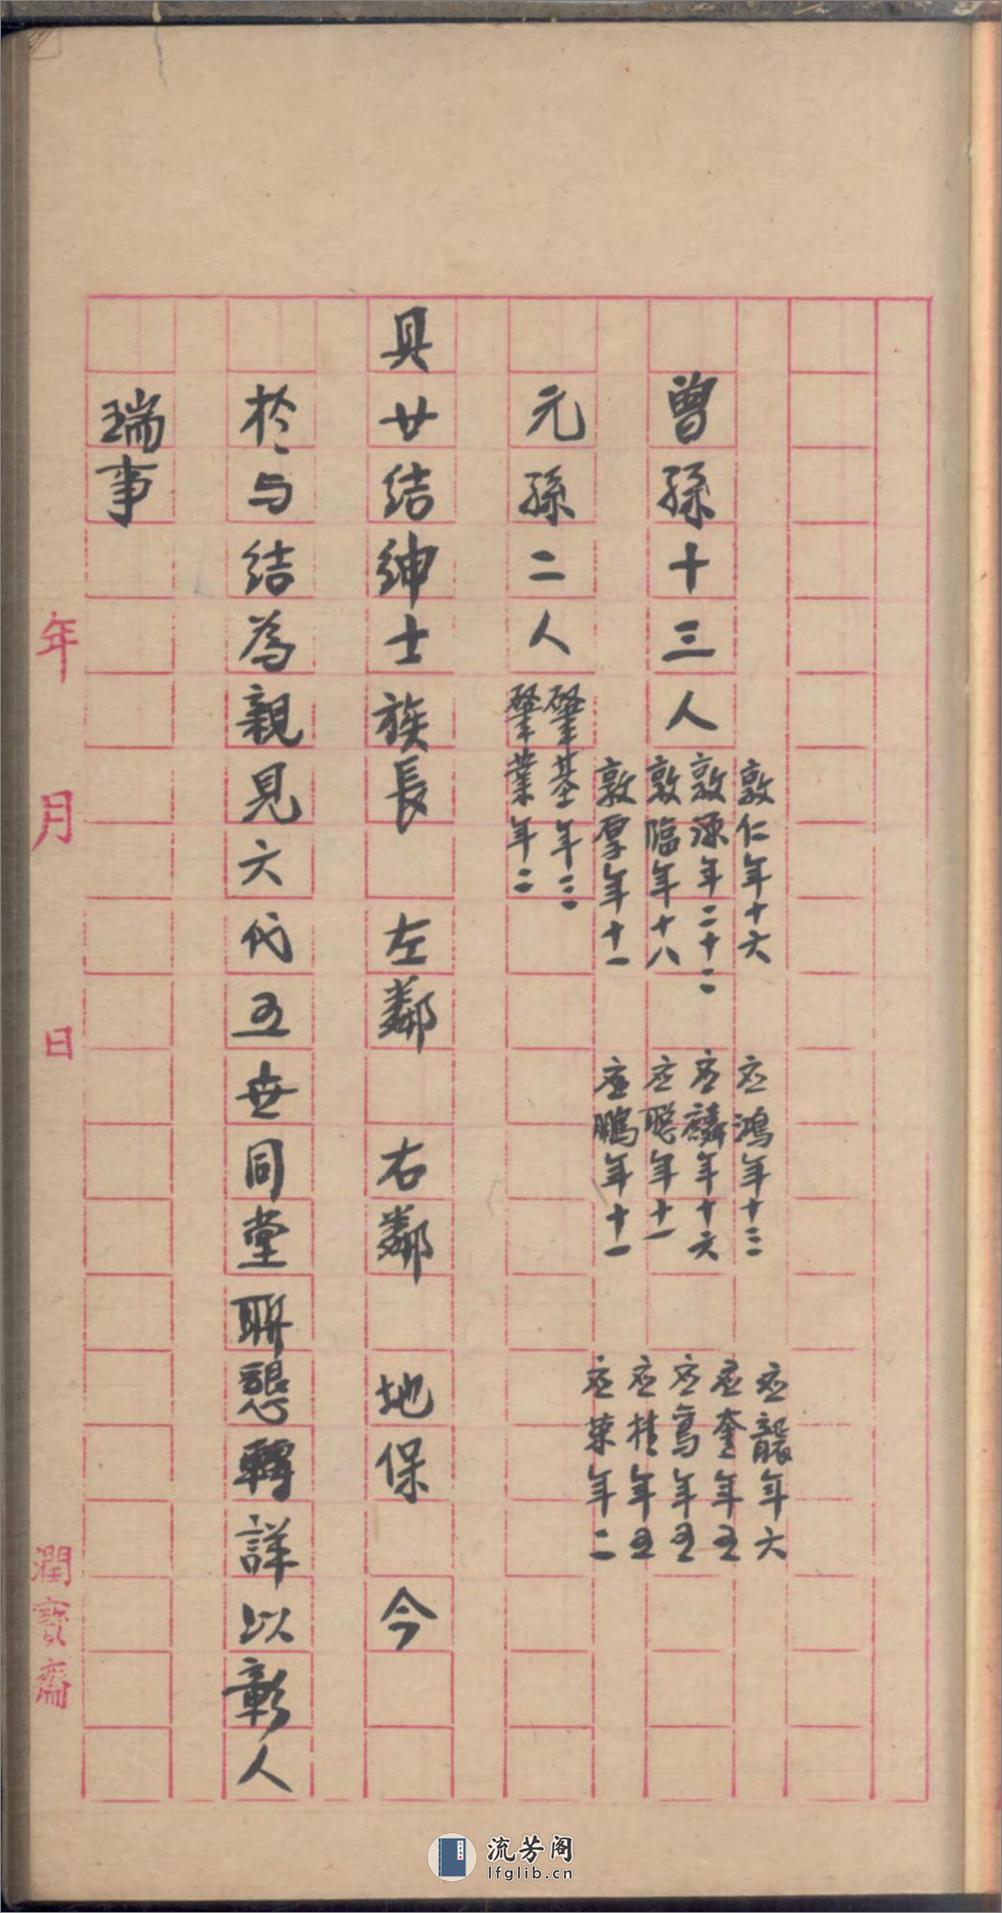 曾孫十三人
敦仁年十六
敦源年二十二
敦臨年十八
敦厚年十一
应鴻年十三
应麟年十六
应聪年十一
应鵬年十一
应龍年六
应奎年五
应嵩年五
应桂年五
应荣年二
元孫二人
肇基年三
肇業年二
具廿结紳士族長 左鄰 右鄰 地保 今
於與结為親見六代五世同堂聨懇轉詳以彰人
瑞事
年 月 日
潤寳齋
流芳阁
lfglib.cn